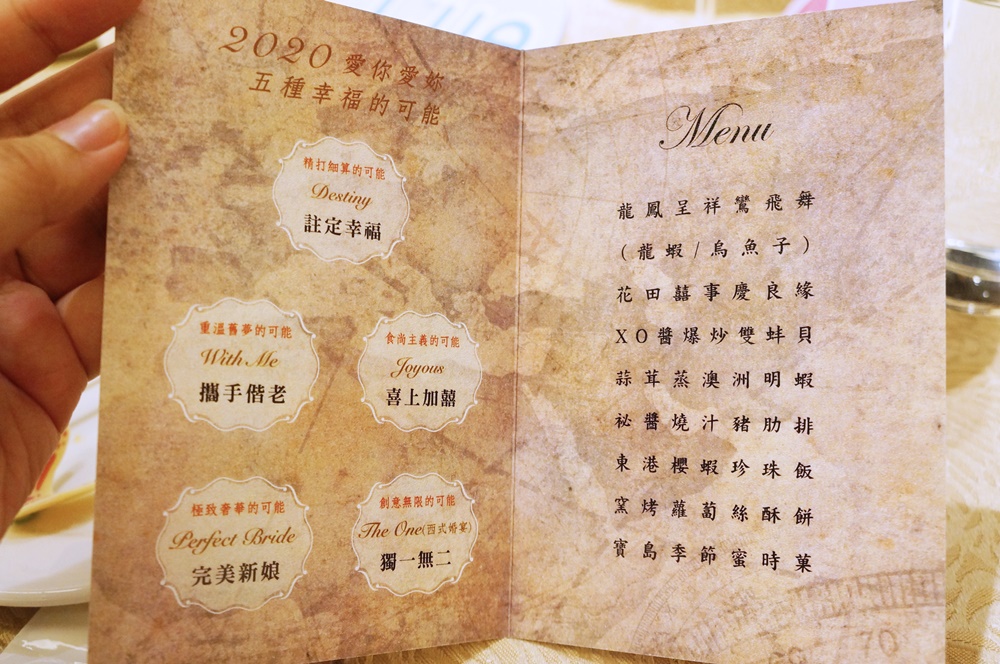 2020 愛你愛妳
五種幸福的可能
精打細算的可能
Destiny
註定幸福
重溫舊夢的可能
With Me
攜手偕老
食尚主義的可能
Joyous
喜上加囍
極致奢華的可能
Perfect Bride
完美新娘
創意無限的可能
The One(西式婚宴)
獨一無二
Menu
龍鳳呈祥鸞飛舞
(龍蝦/烏魚子)
花田囍事慶良緣
XO醬爆炒雙蚌貝
蒜茸蒸澳洲明蝦
祕醬燒汁豬肋排
東港櫻蝦珍珠飯
窯烤蘿蔔絲酥餅
寶島季節蜜時菓
70